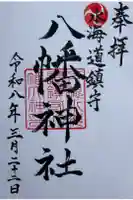 奉拝
北海道鎮守
八幡神社
令和八年三月二十二日